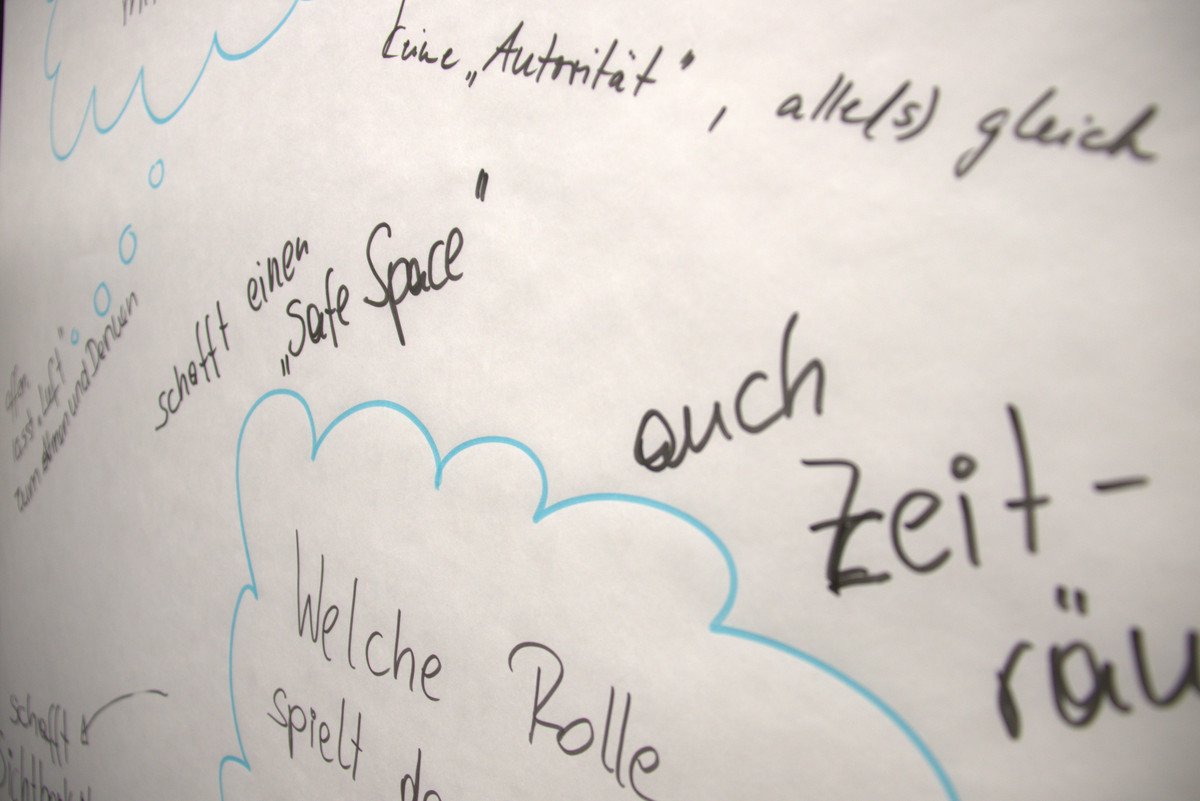 keine „Autorität", alle(s) gleich
schafft einen
„Safe Space"
offen
lässt „Luft"
zum Atmen und Denken
auch
Zeit-
räu
Welche Rolle
spielt da
schafft